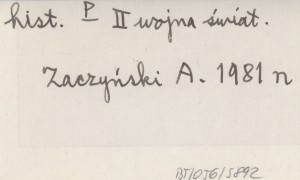 hist. P II wojna świat.
Zaczyński A. 1981 n
BJ/OJG/5892